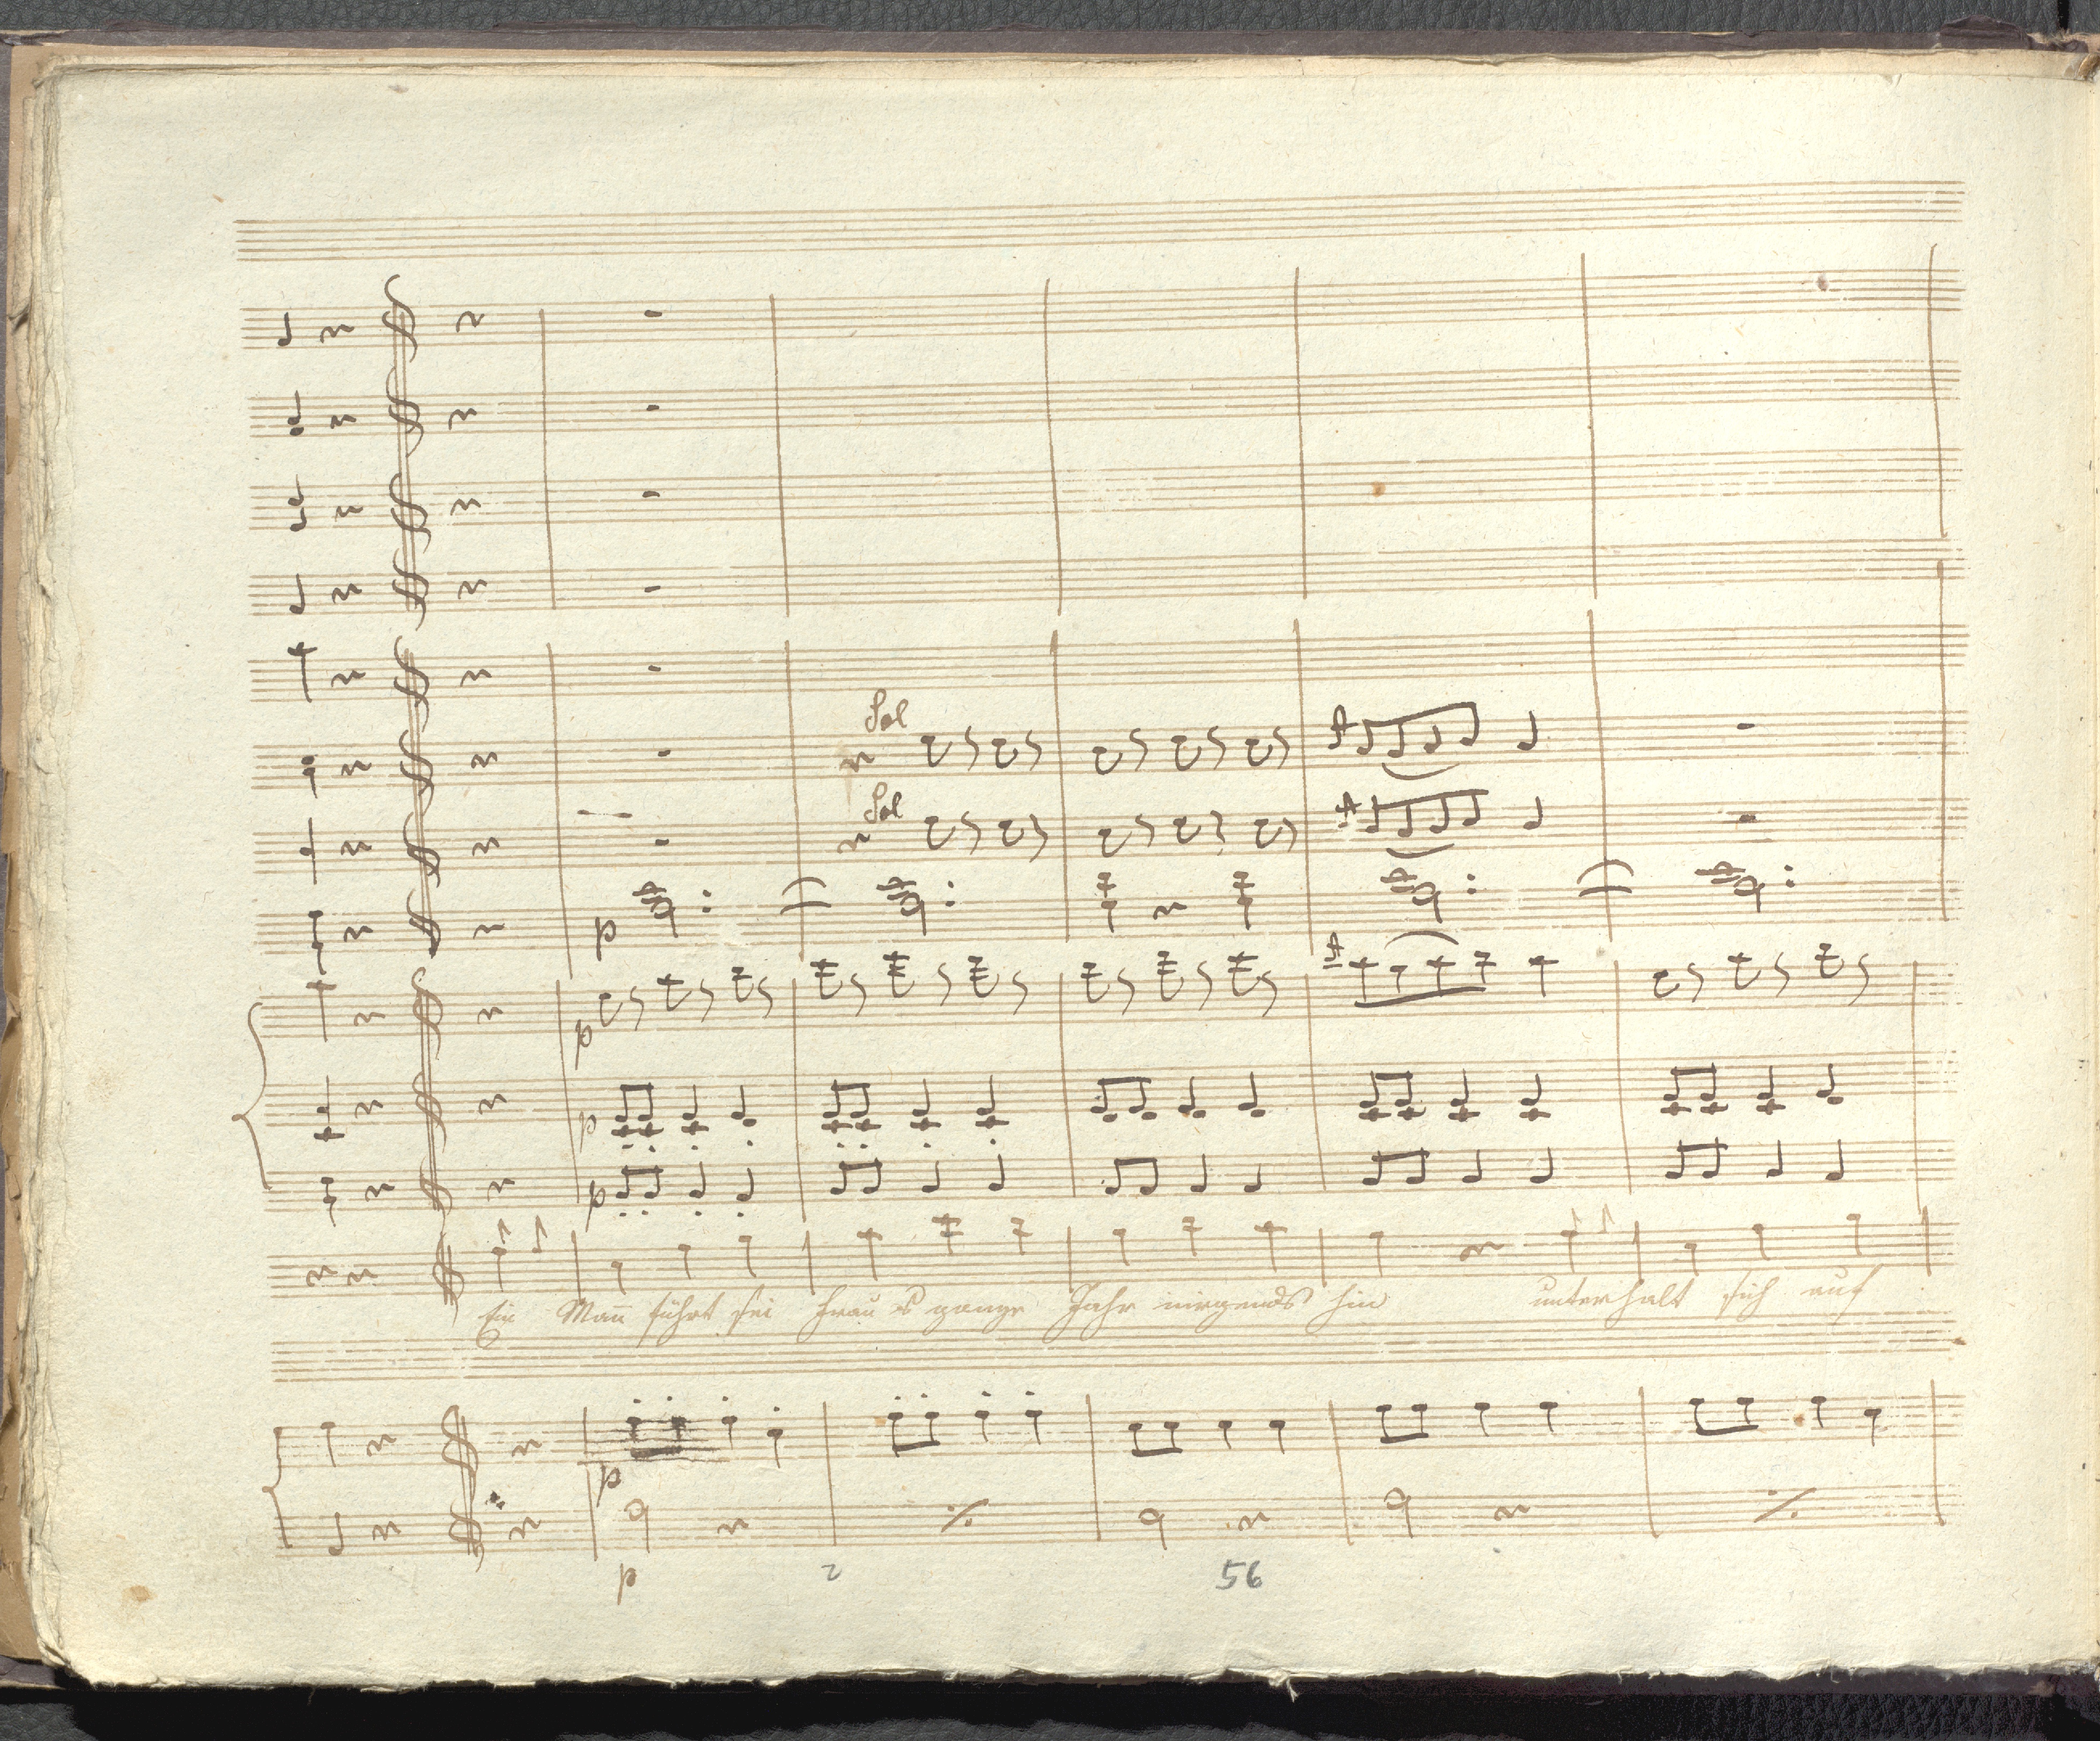 Sol
Sol
p
p
p
p
Ein Man̄ führt sei Frau s' ganze Jahr nirgends hin unterhalt sich auf
p
p
2
56